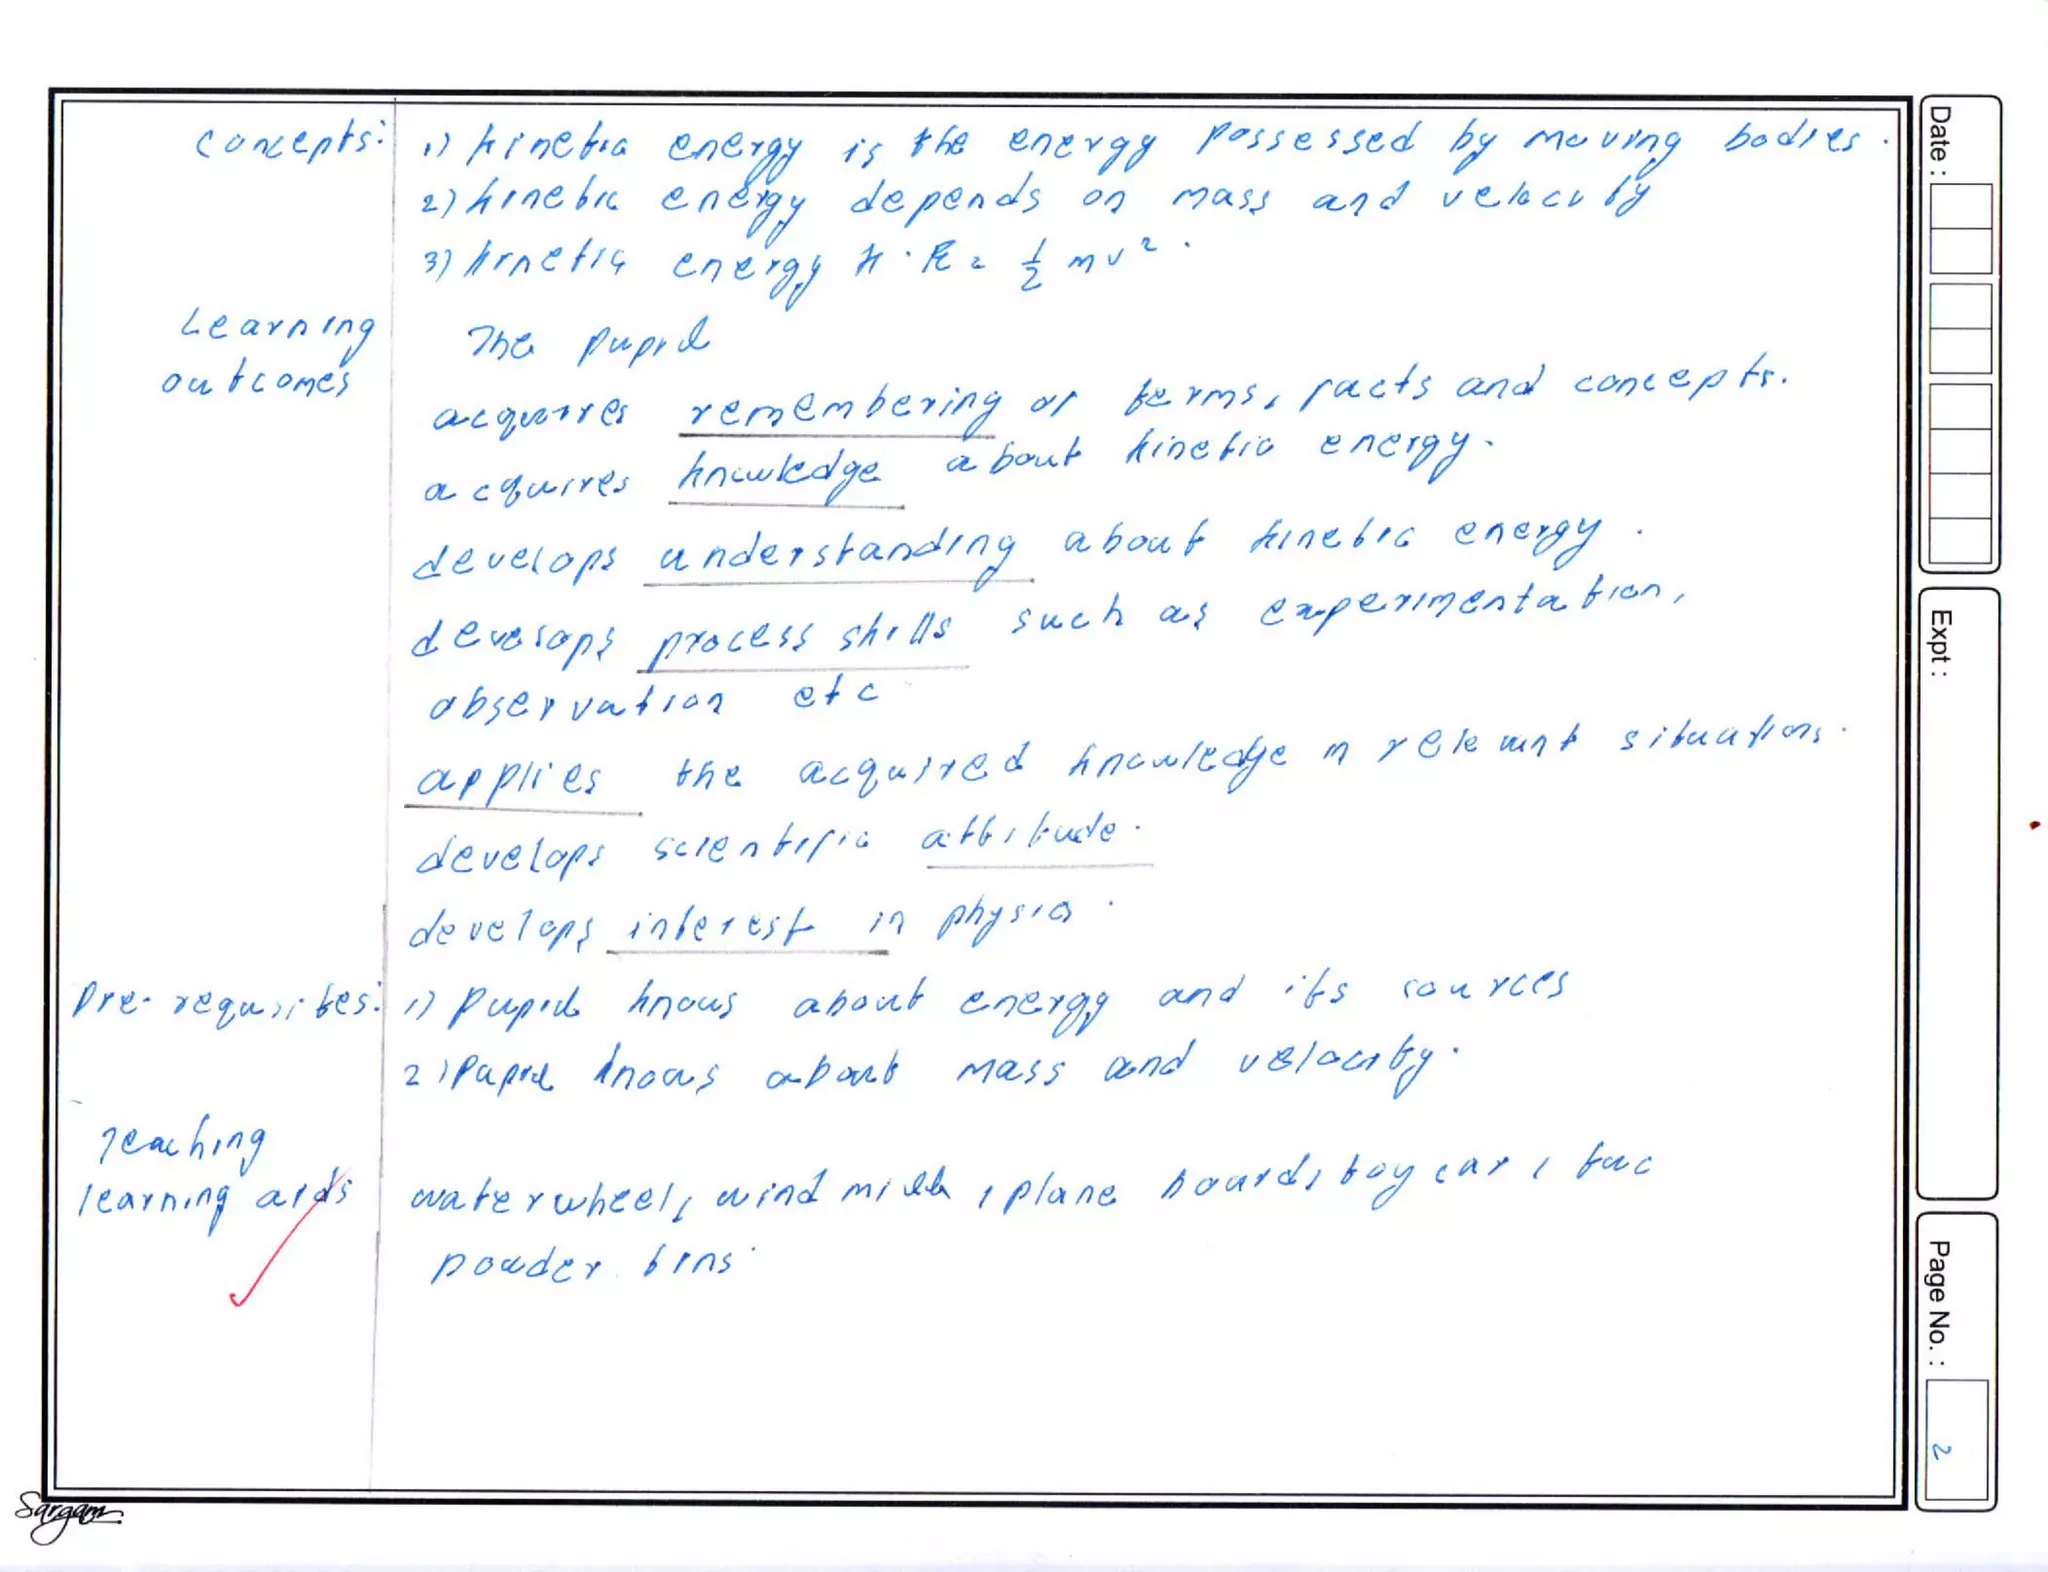 Concepts: 1) Kinetic energy is the energy possessed by moving bodies.
2) Kinetic energy depends on mass and velocity
3) Kinetic energy K.E = 1/2 mv².
Learning outcomes
The pupil
acquires remembering of terms, facts and concepts.
acquires knowledge about kinetic energy.
develops understanding about kinetic energy.
develops process skills such as experimentation,
observation etc
applies the acquired knowledge in relevant situations.
develops scientific attitude.
develops interest in physics.
Pre-requisites: 1) Pupil knows about energy and its sources
2) Pupil knows about mass and velocity.
Teaching
learning aids waterwheel, wind mill, plane boards, toy car, two
powder tins.
Date :
Expt :
Page No. : 2
Sargam